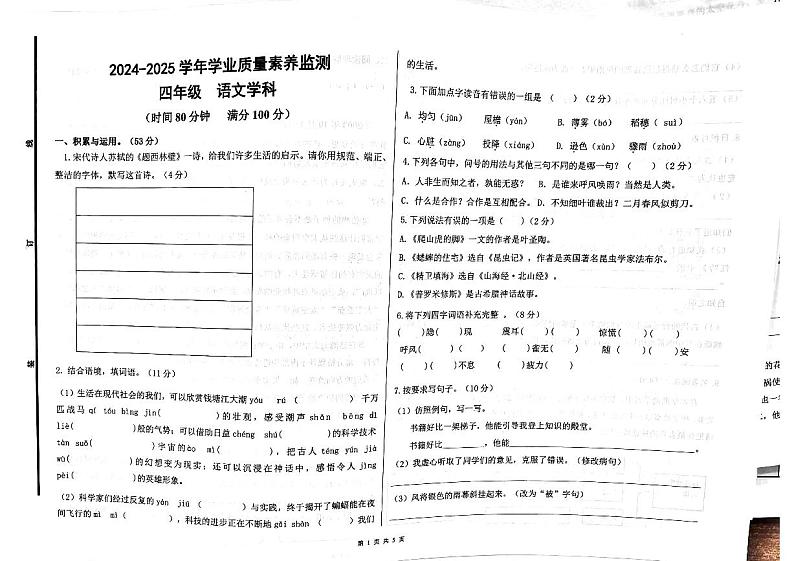 2024-2025 学年学业质量素养监测
四年级 语文学科
（时间 80 分钟 满分 100 分）
一、积累与运用。（53 分）
1. 宋代诗人苏轼的《题西林壁》一诗，给我们许多生活的启示。请你用规范、端正、
整洁的字体，默写这首诗。（4 分）
2. 结合语境，填词语。（11 分）
（1）生活在现代社会的我们，可以欣赏钱塘江大潮 yóu rú （ ）千万
匹战马 qí tóu bìng jìn（ ）的壮观，感受潮声 shān bēng dì
liè（ ）般的气势；可以借助日益 chéng shú（ ）的科学技术
tàn suǒ（ ）宇宙的 ào mì（ ），把古人 téng yún jià
wù（ ）的幻想变为现实；还可以沉浸在神话中，感悟令人 jìng
pèi（ ）的英雄形象。
（2）科学家们经过反复的 yán jiū （ ）与实践，终于揭开了蝙蝠能在夜
间飞行的 mì mì（ ），科技的进步正在不断地 gǎi shàn （ ）我们
的生活。
3. 下面加点字读音有错误的一组是 （ ）（2 分）
A. 均匀（jūn） 屋檐（yán） B. 薄雾（bó） 稻穗（ suì）
C. 心脏（zàng） 投降（xiáng） D. 逊色（xùn） 骤雨（zhoù）
4. 下列各句中，问号的用法与其他三句不同的是哪一句？（ ）（2 分）
A. 人非生而知之者，孰能无惑？ B. 是谁来呼风唤雨？当然是人类。
C. 什么是合作？合作是互相配合。 D. 不知细叶谁裁出？二月春风似剪刀。
5. 下列说法有误的一项是（ ）（2 分）
A.《爬山虎的脚》一文的作者是叶圣陶。
B.《蟋蟀的住宅》选自《昆虫记》，作者是英国著名昆虫学家法布尔。
C.《精卫填海》选自《山海经·北山经》。
D.《普罗米修斯》是古希腊神话故事。
6. 将下列四字词语补充完整 。（8 分）
（ ）隐（ ）现 震耳（ ）（ ） 惊慌（ ）（ ）
呼风（ ）（ ） （ ）雀无（ ） 随（ ）（ ）安
（ ）（ ）不息 （ ）疲力（ ）
7. 按要求写句子。（10 分）
（1）仿照例句，写一写。
书籍好比一架梯子，他能引导我登上知识的殿堂。
书籍好比 ，他能
（2）我虚心听取了同学们的意见，克服了错误。（修改病句）
（3）风将银色的雨幕斜挂起来。（改为“被”字句）
第 1 页 共 5 页
线
订
装